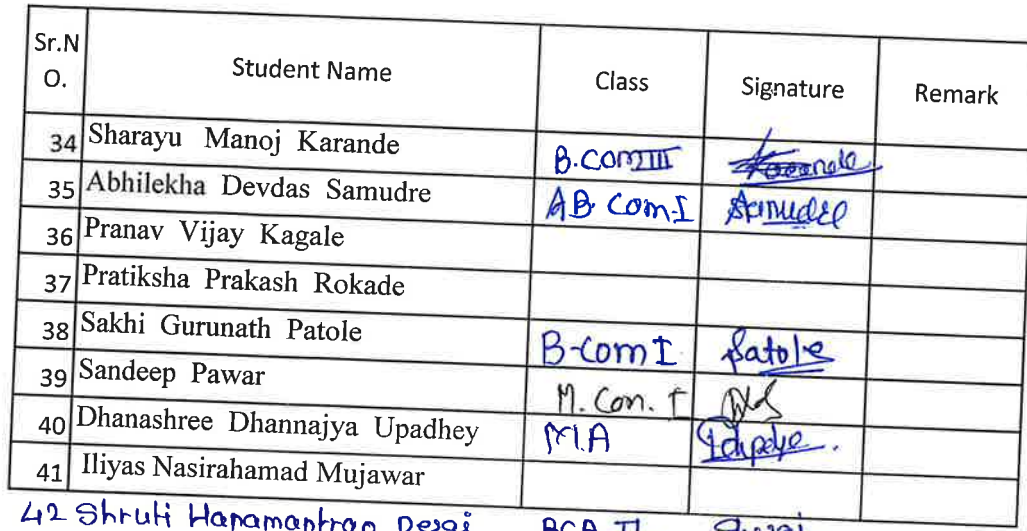 Sr.N O. Student Name Class Signature Remark
34 Sharayu Manoj Karande B.COM III Karande
35 Abhilekha Devdas Samudre AB Com-I Samudre
36 Pranav Vijay Kagale
37 Pratiksha Prakash Rokade
38 Sakhi Gurunath Patole B-com I Patole
39 Sandeep Pawar M. Com. I
40 Dhanashree Dhannajya Upadhey M.A
41 Iliyas Nasirahamad Mujawar
42 Shruti Hanamantrao Desai BCA II